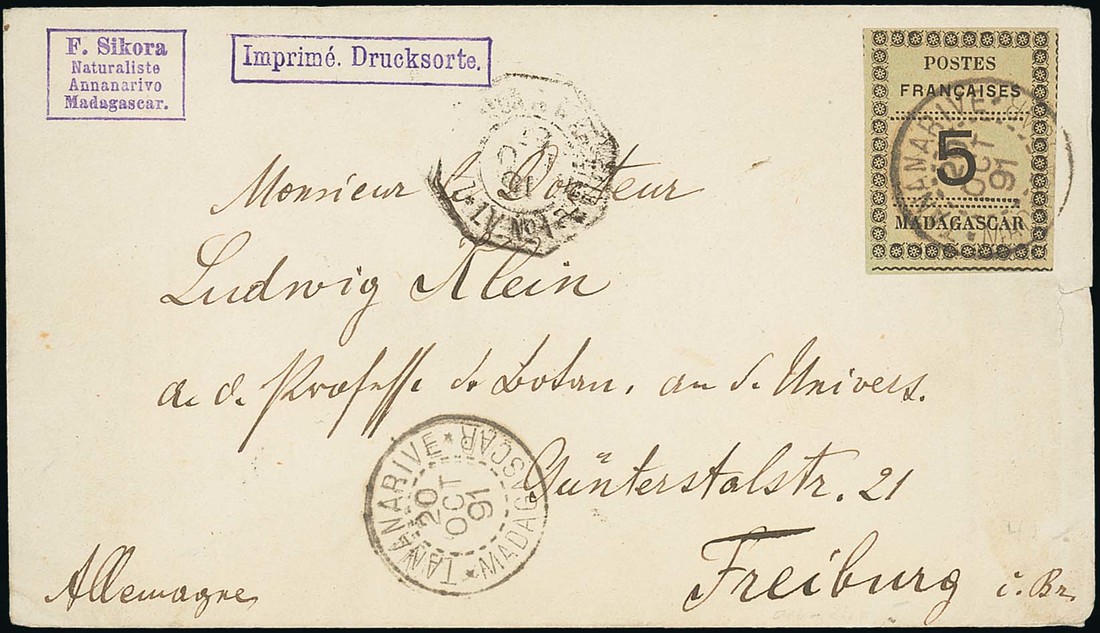 F. Sikora
Naturaliste
Annanarivo
Madagascar.
Imprimé. Drucksorte.
POSTES
FRANÇAISES
5
MADAGASCAR
TANANARIVE
OCT
91
Monsieur le Docteur
Ludwig Klein
a. d. Professe de Botan. an d. Univers.
Günterstalstr. 21
Freiburg i. Br.
Allemagne
TANANARIVE * MADAGASCAR *
20
OCT
91
91